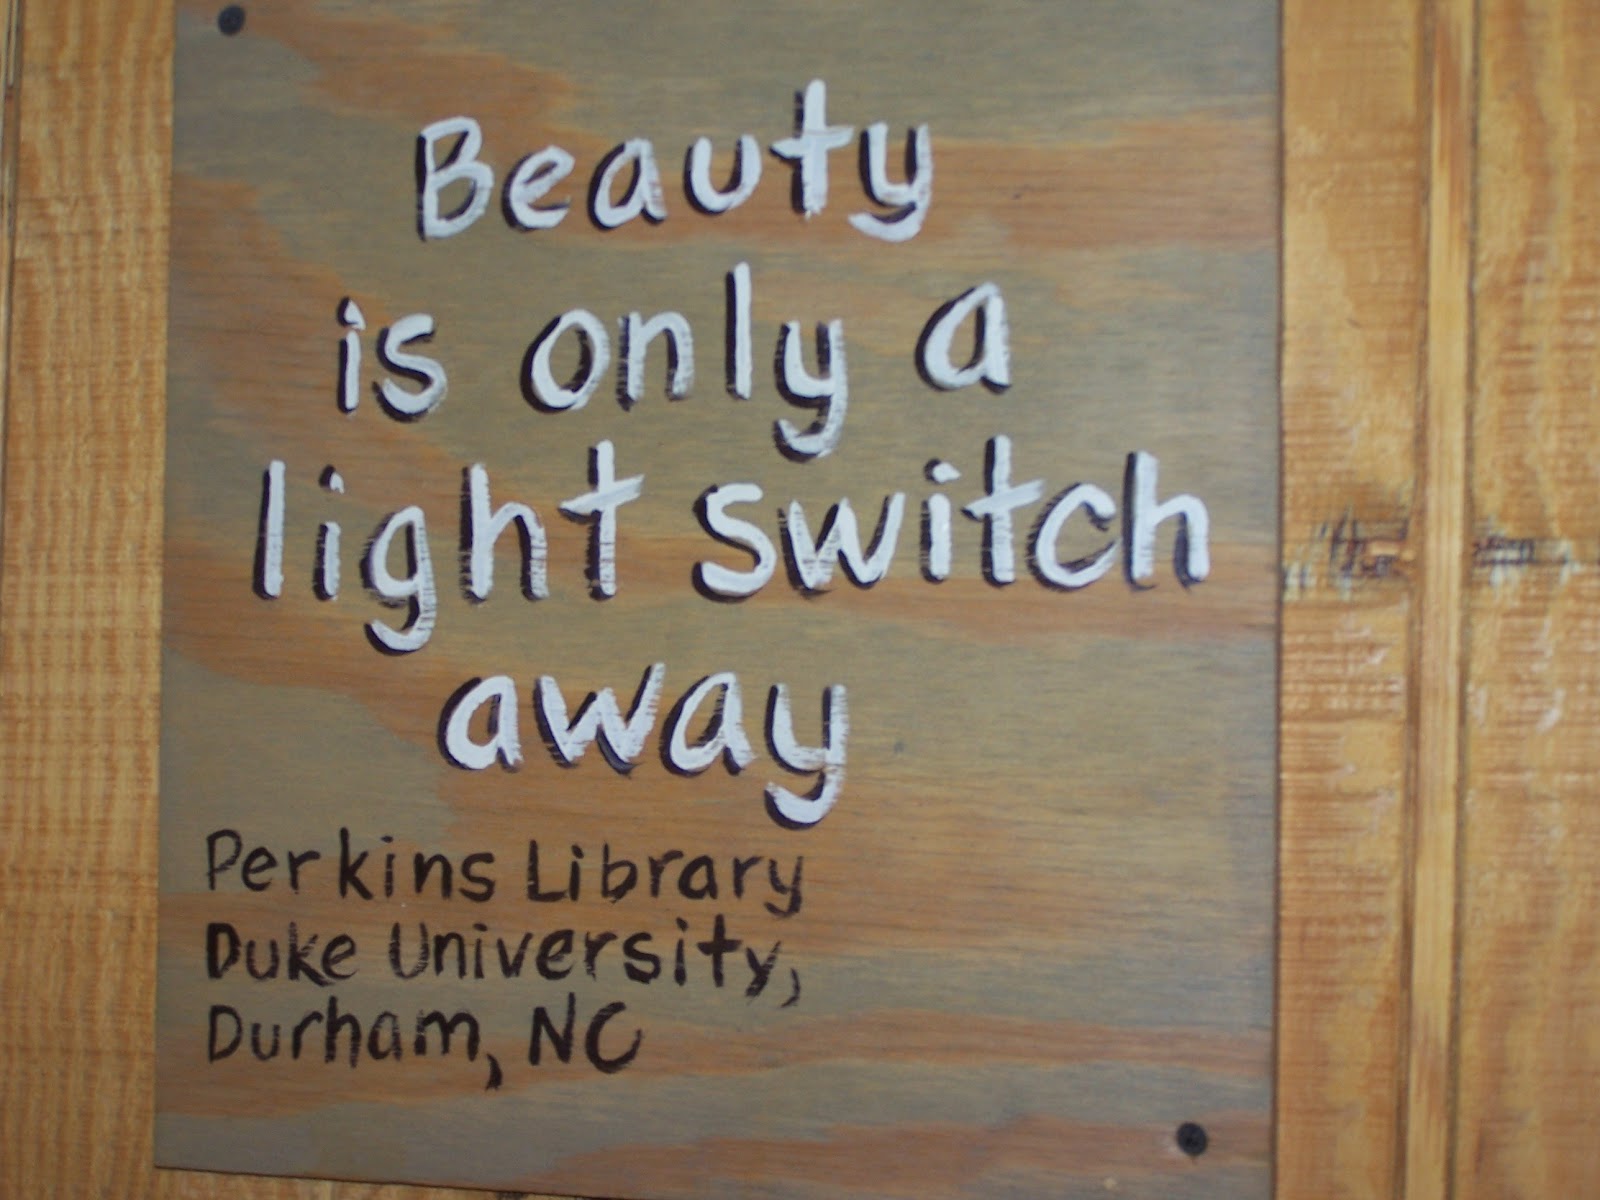 Beauty
is only a
light switch
away
Perkins Library
Duke University,
Durham, NC